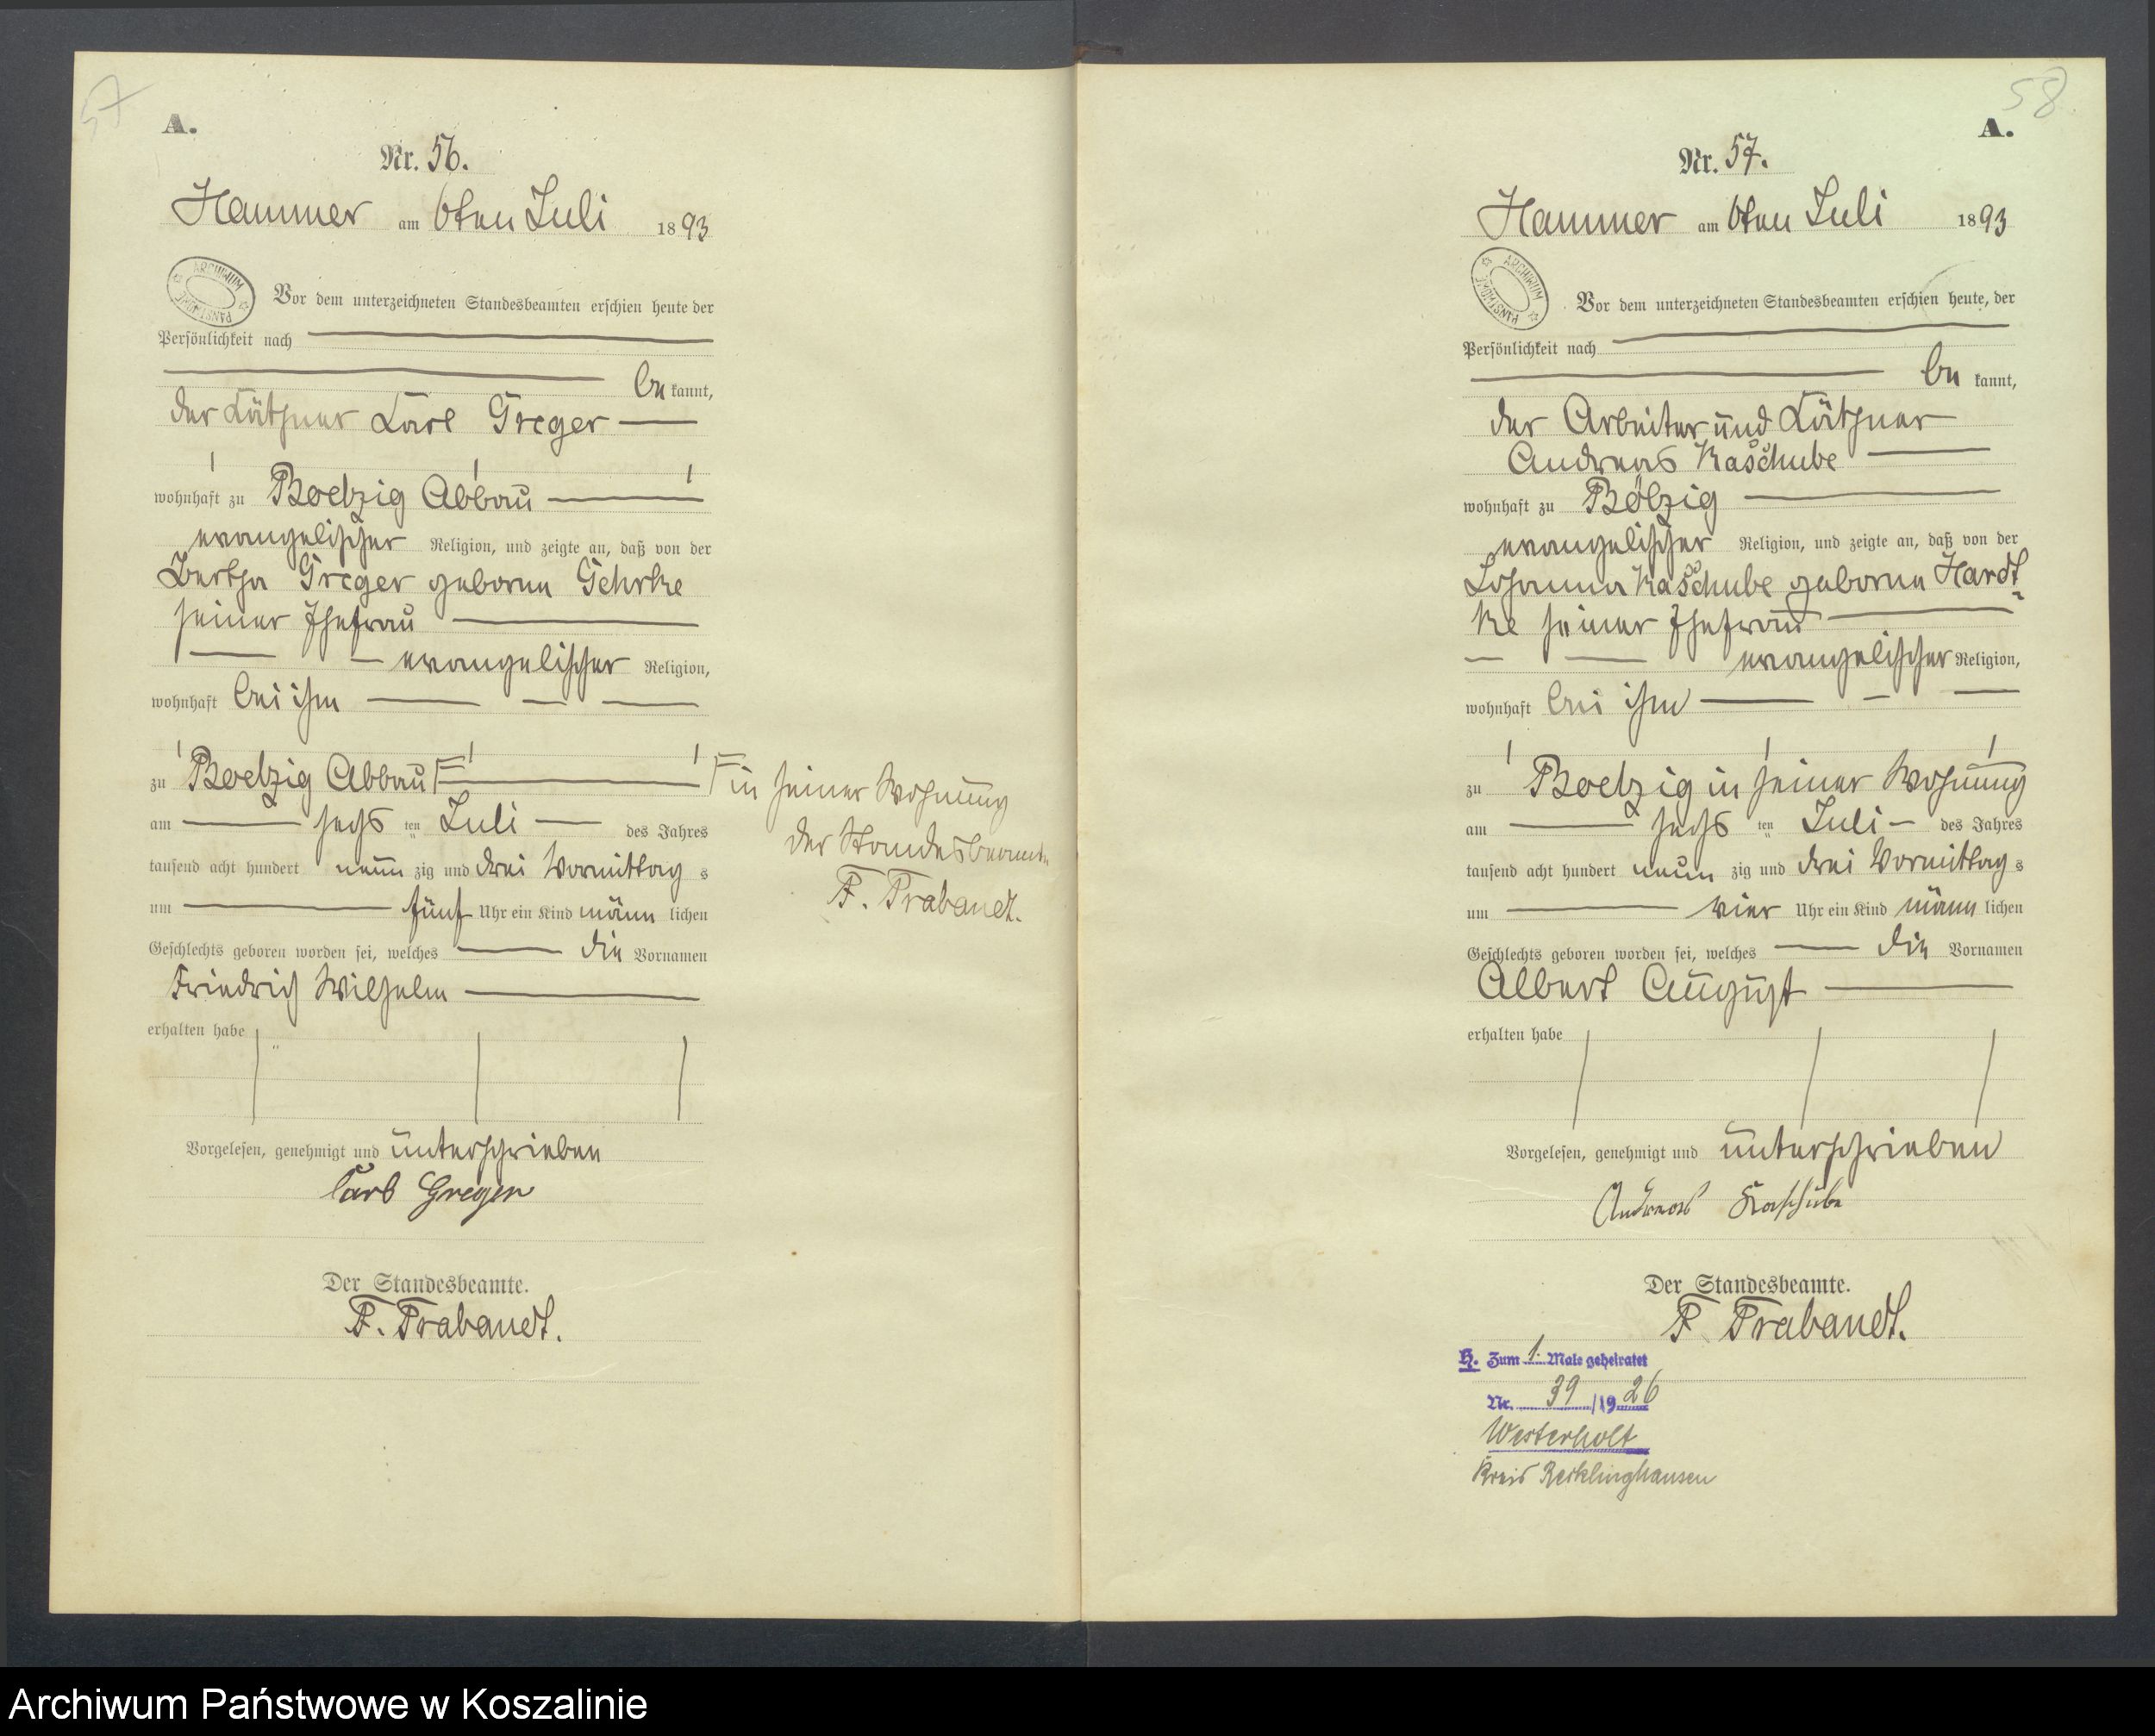 57
A.
Nr. 56.
Hammer am 6ten Juli 1893
ARCHIWUM PAŃSTWOWE
Vor dem unterzeichneten Standesbeamten erschien heute der
Persönlichkeit nach
be kannt,
der Käthner Carl Greger
wohnhaft zu Boelzig Abbau
evangelischer Religion, und zeigte an, daß von der
Bertha Greger geborne Gehrke
seiner Ehefrau
evangelischer Religion,
wohnhaft bei ihm
zu Boelzig Abbau F
am sechs ten Juli des Jahres
tausend acht hundert neun zig und drei Vormittag s
um fünf Uhr ein Kind männ lichen
Geschlechts geboren worden sei, welches die Vornamen
Friedrich Wilhelm
erhalten habe
Vorgelesen, genehmigt und unterschrieben
Carl Greger
Der Standesbeamte.
F. Trabandt.
F in seiner Wohnung
der Standesbeamte
F. Trabandt.
58
A.
Nr. 57.
Hammer am 6ten Juli 1893
ARCHIWUM PAŃSTWOWE
Vor dem unterzeichneten Standesbeamten erschien heute, der
Persönlichkeit nach
be kannt,
der Arbeiter und Käthner
Andreas Kaschube
wohnhaft zu Bölzig
evangelischer Religion, und zeigte an, daß von der
Johanna Kaschube geborne Hardt=
ke seiner Ehefrau
evangelischer Religion,
wohnhaft bei ihm
zu Boelzig in seiner Wohnung
am sechs ten Juli des Jahres
tausend acht hundert neun zig und drei Vormittag s
um vier Uhr ein Kind männ lichen
Geschlechts geboren worden sei, welches die Vornamen
Albert August
erhalten habe
Vorgelesen, genehmigt und unterschrieben
Andreas Kaschube
Der Standesbeamte.
F. Trabandt.
H. Zum 1. Male geheiratet
Nr. 39 /19 26
Westerholt
Kreis Recklinghausen
Archiwum Państwowe w Koszalinie